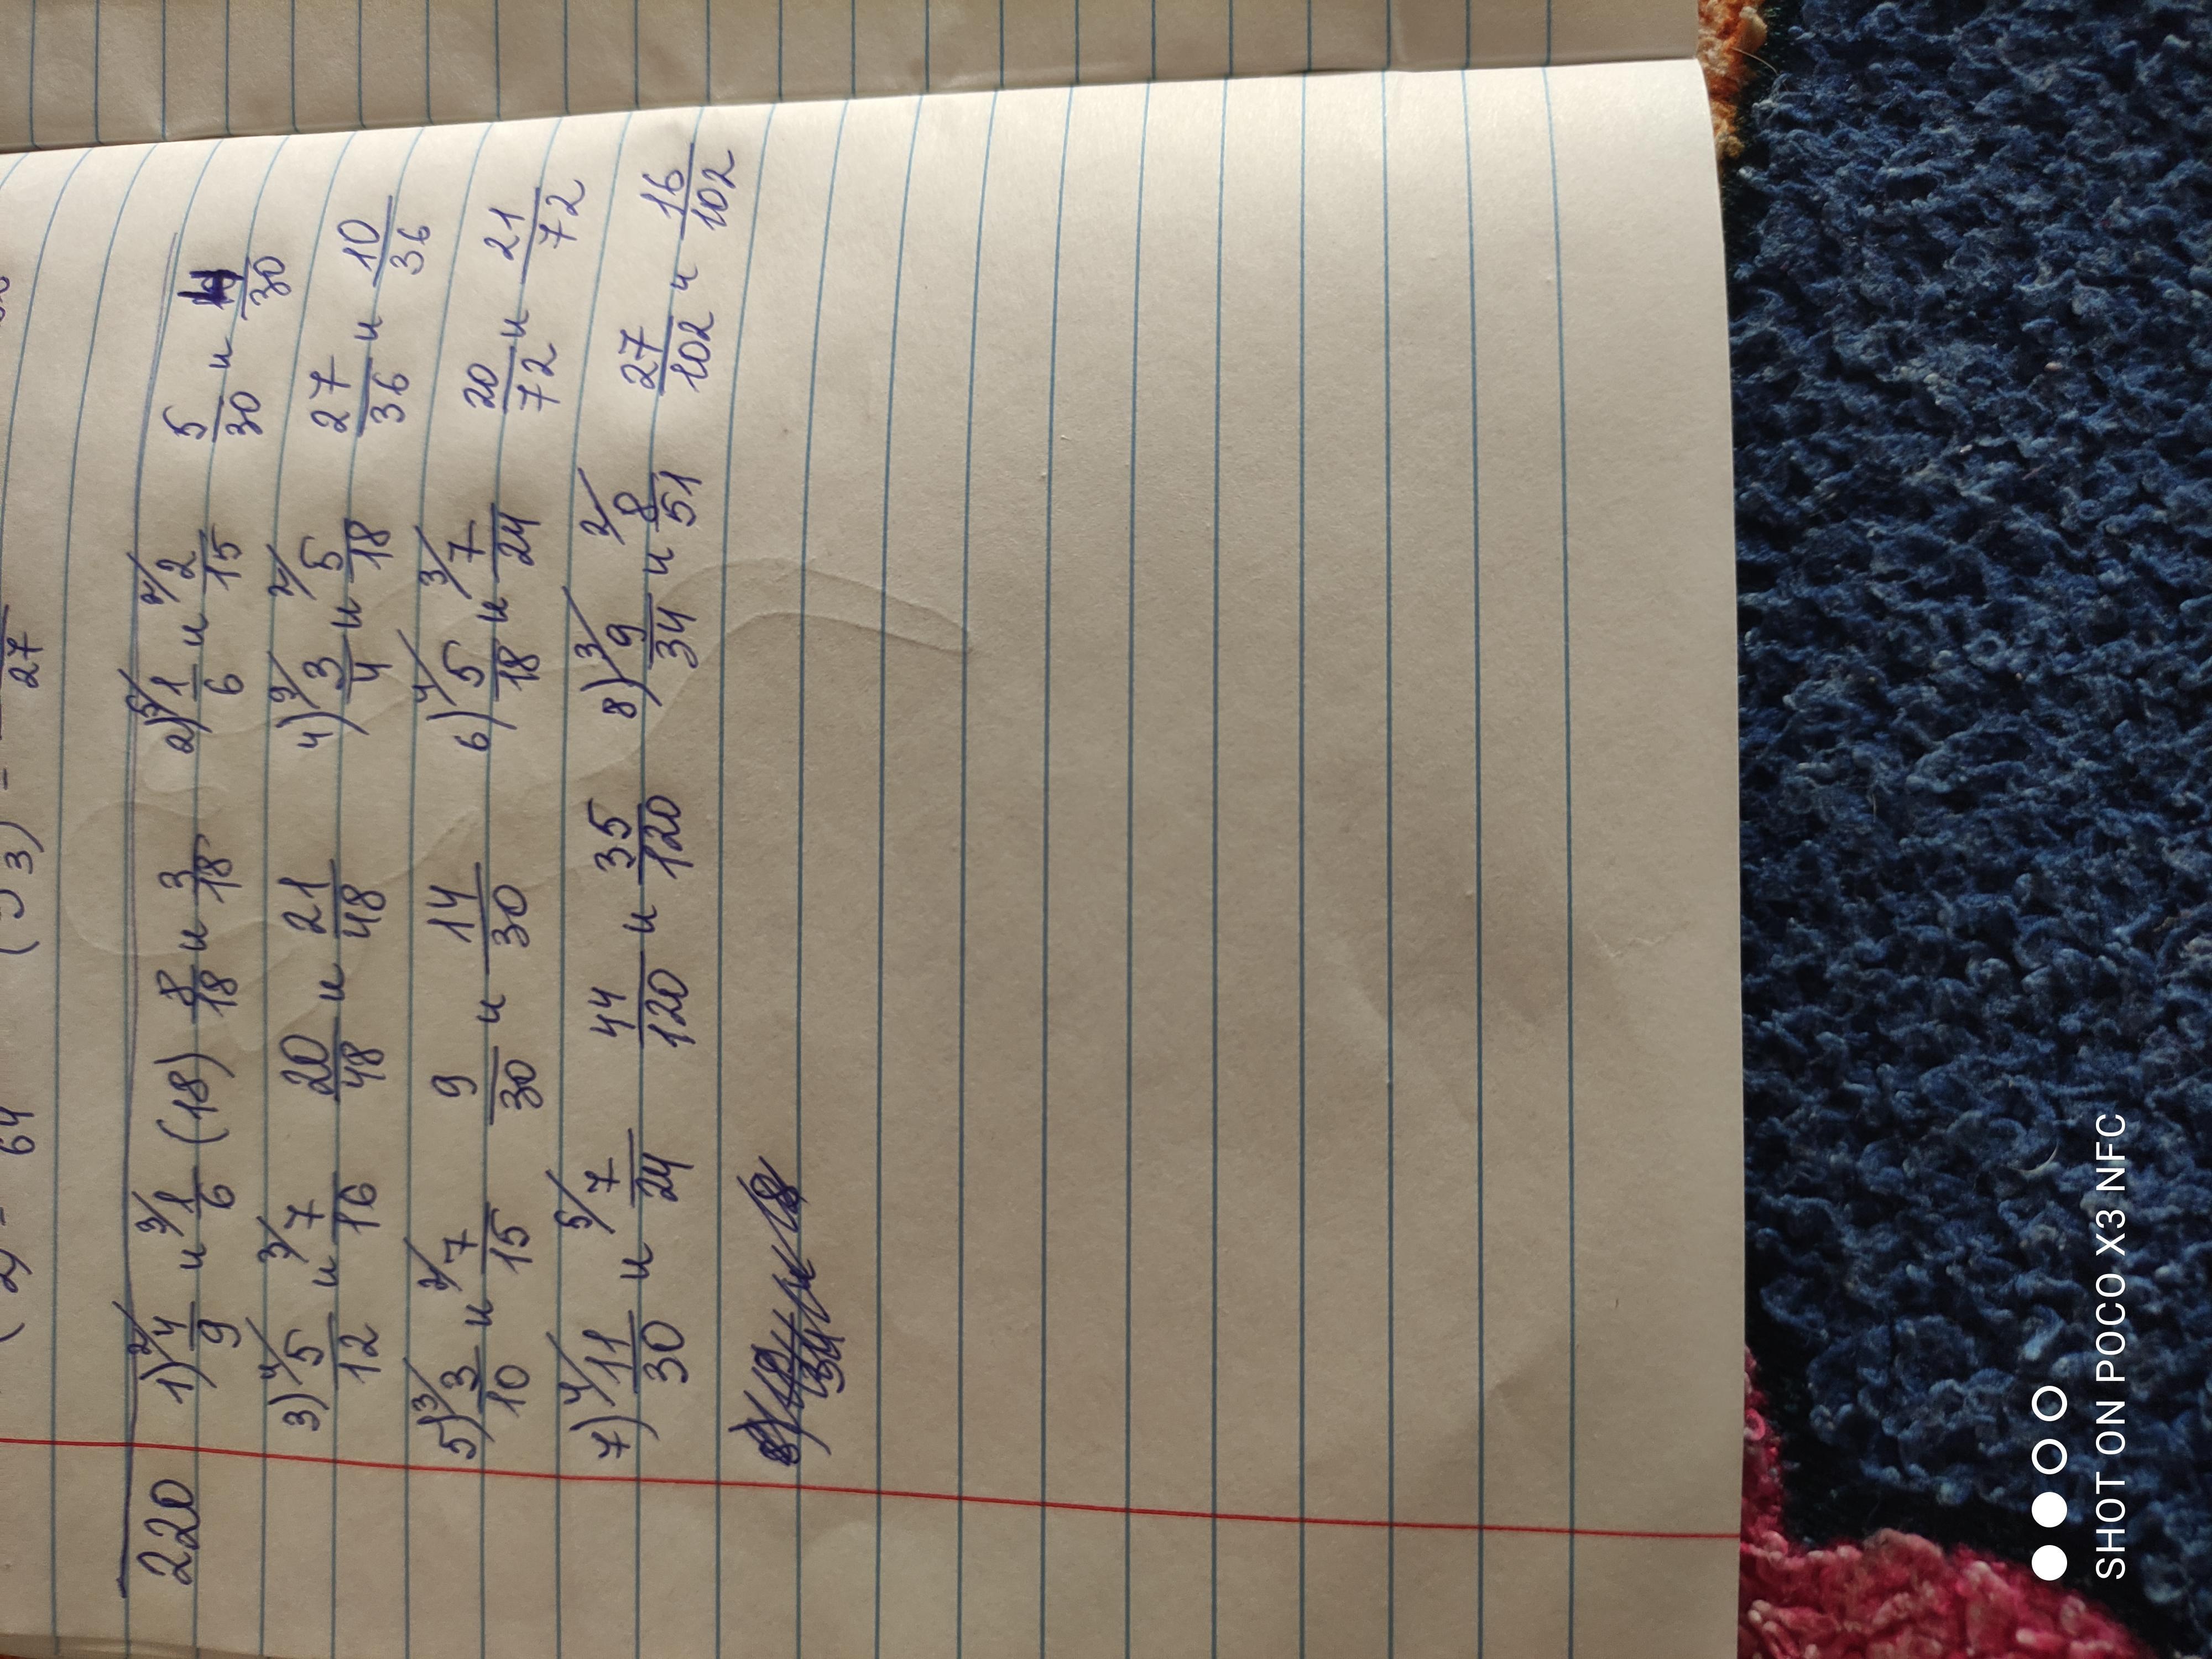 27
220 1) 2/ 4/9 и 3/ 1/6 (18) 8/18 и 3/18 2) 5/ 1/6 и 2/ 2/15 5/30 и 4/30
3) 4/ 5/12 и 3/ 7/16 20/48 и 21/48 4) 9/ 3/4 и 2/ 5/18 27/36 и 10/36
5) 3/ 3/10 и 2/ 7/15 9/30 и 14/30 6) 4/ 5/18 и 3/ 7/24 20/72 и 21/72
7) 4/ 11/30 и 5/ 7/24 44/120 и 35/120 8) 3/ 9/34 и 2/ 8/51 27/102 и 16/102
SHOT ON POCO X3 NFC